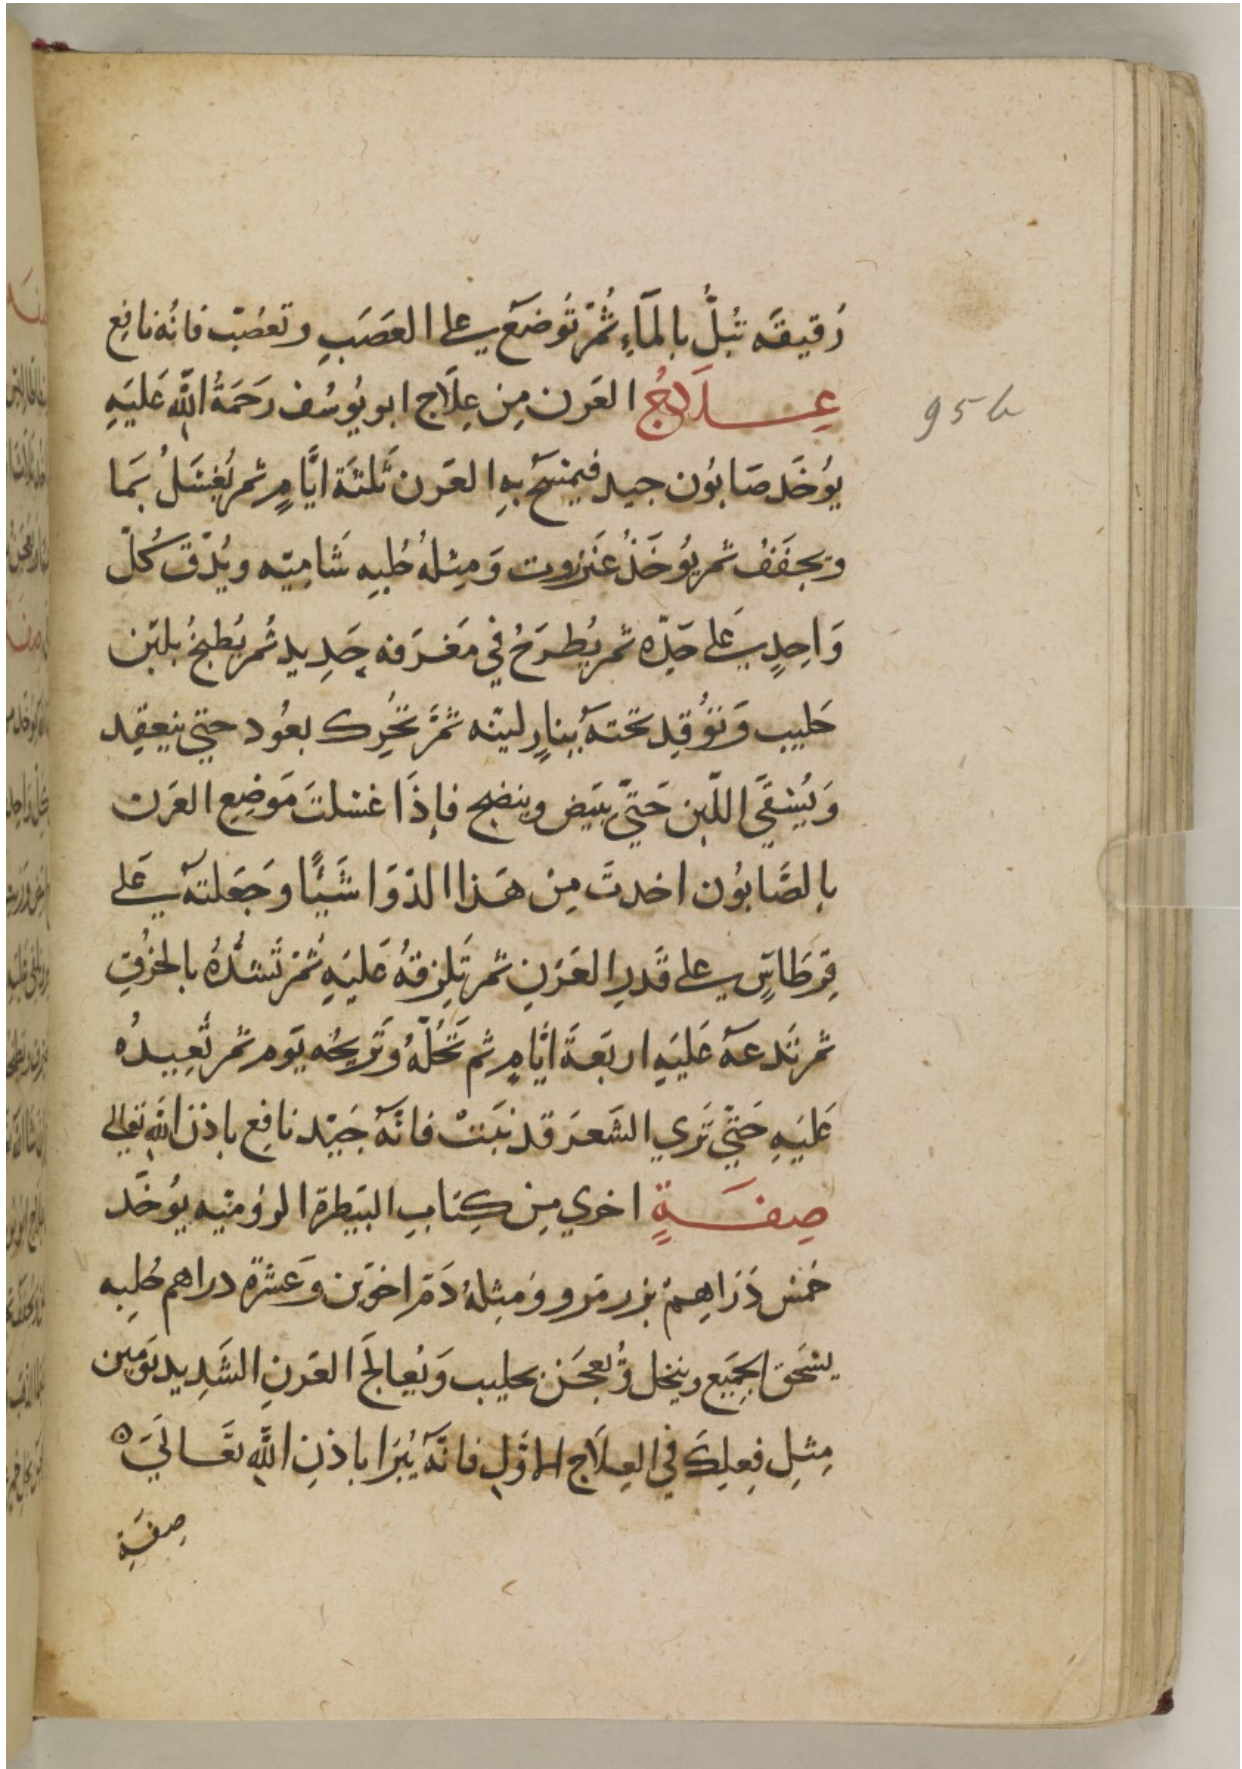 رَقيقَه تُبَلُّ بالمَآءِ ثُمَّ تُوضَع على العَصَبِ وتعصَبْ فانُه نافِع
عِلَاجُ العَرن مِن عِلَاج ابو يُوسُف رَحَمَةُ اللَّه عَليَهِ
95b
يوُخَد صَابُون جيد فيمسَح بهِ العَرن ثَلثَة ايَّامٍ ثم يُغسَلُ بمَا
ويجفَفُ ثم يُوخَذُ عنَزروت وَمِثلهُ حُلبِه شَامِيّه ويُدّق كُلّ
وَاحِدٍ عَلى حَدِّه ثم يُطرَحُ في مَغرَفه حَدِيد ثُم يُطبخُ بلبَن
حَليب وَتوُقِد تحتهَ بنارٍ ليّنه ثمَّ تُحَرِك بعُود حتي ينعقِد
وَيُسَقَي اللّبن حَتّي يبيَض وينضج فاِذَا غسلتَ مَوضِع العَرَن
بالصَّابُون اخدتَ مِن هَذا الدوَا شَيًَا وجَعَلتهَ عَلى
قِرطَاسٍ على قَدرِ العَرَنِ ثم تَلِزقهُ عَليَهِ ثُمَّ تَشدُّهُ بالخِرَقِ
ثم تَدعهَ عَليَهِ اربَعَة ايَّامٍ ثم تَحُلّهُ وَتَريحُه يَوم ثم تُعِيدُه
عَليَهِ حَتّي تَري الشَعرَ قد نَبَتْ فانَّهَ جَيّد نافِع باذن اللَّه تعَالي
صِفَةٍ اخري مِن كِتابِ البَيطرة الروُميّه يوُخَد
خمَس دَرَاهِم بزر مَرو وَمِثلهُ دَمَ اخوَين وَعَشرَة دراهم حُلبِه
يسَحَق الجمَيع وينخل وَيُعجَن بحليب وَيُعالَج العَرنِ الشَدِيد يَومَين
مِثلِ فِعلِكَ في العِلَاج الاَوَّلِ فانَّهَ يُبرَا باذنِ اللَّهِ تعَالَيَ ه
صِفَةِ